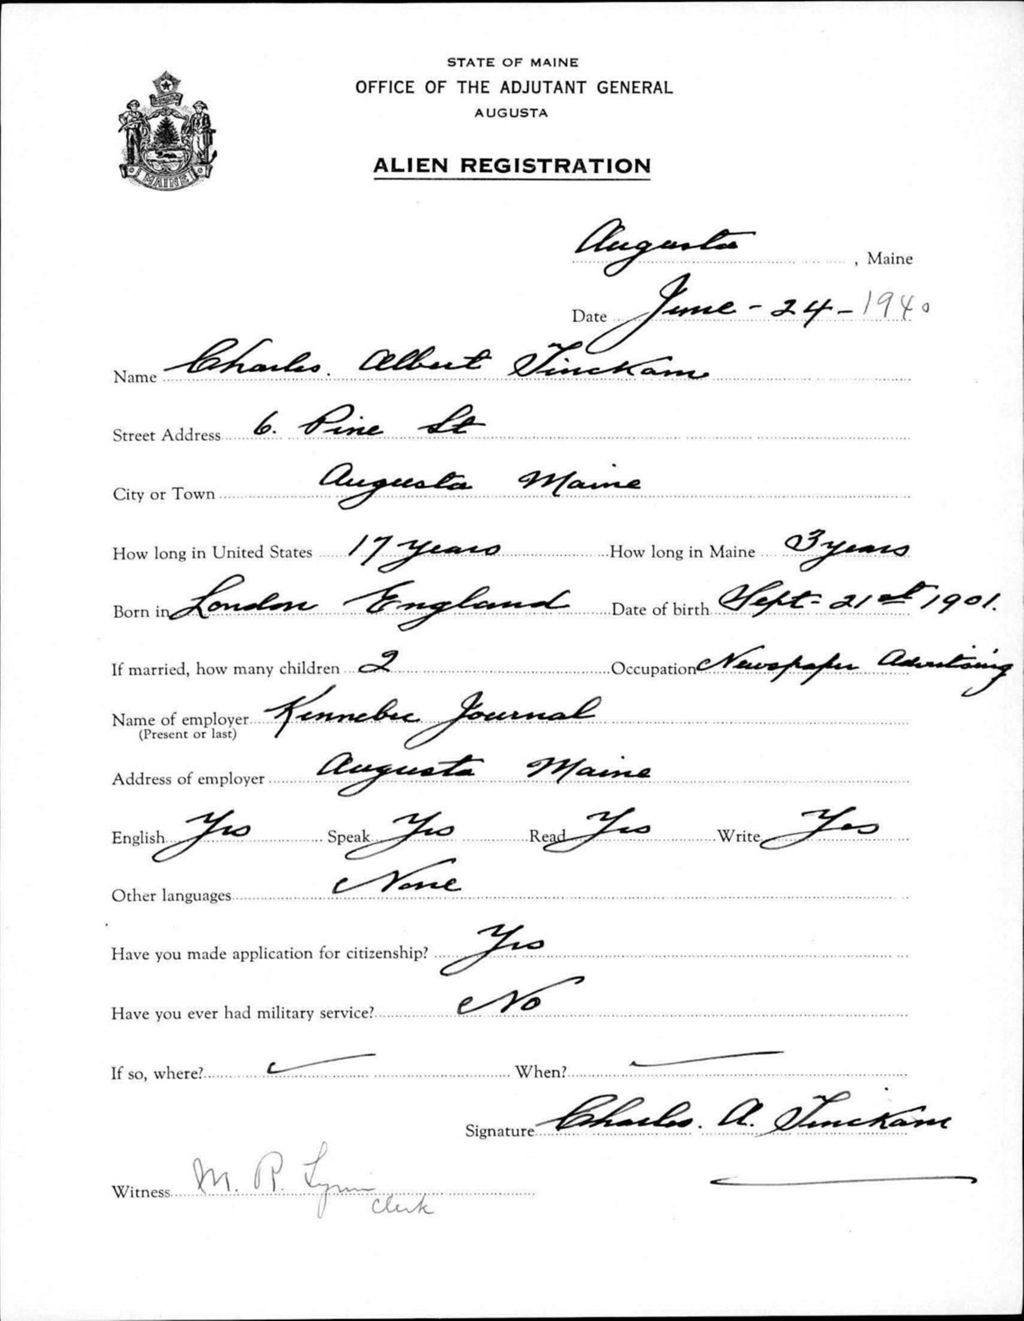 STATE OF MAINE
OFFICE OF THE ADJUTANT GENERAL
AUGUSTA
ALIEN REGISTRATION
MAINE
Augusta, Maine
Date June - 24 - 1940
Name Charles. Albert Tinckam
Street Address 6. Pine St
City or Town Augusta Maine
How long in United States 17 years How long in Maine 3 years
Born in London England Date of birth Sept. 21st 1901.
If married, how many children 2 Occupation Newspaper Advertising
Name of employer Kennebec Journal
(Present or last)
Address of employer Augusta Maine
English Yes Speak Yes Read Yes Write Yes
Other languages None
Have you made application for citizenship? Yes
Have you ever had military service? No
If so, where? When?
Signature Charles. A. Tinckam
Witness M. R. Lynn
Clerk